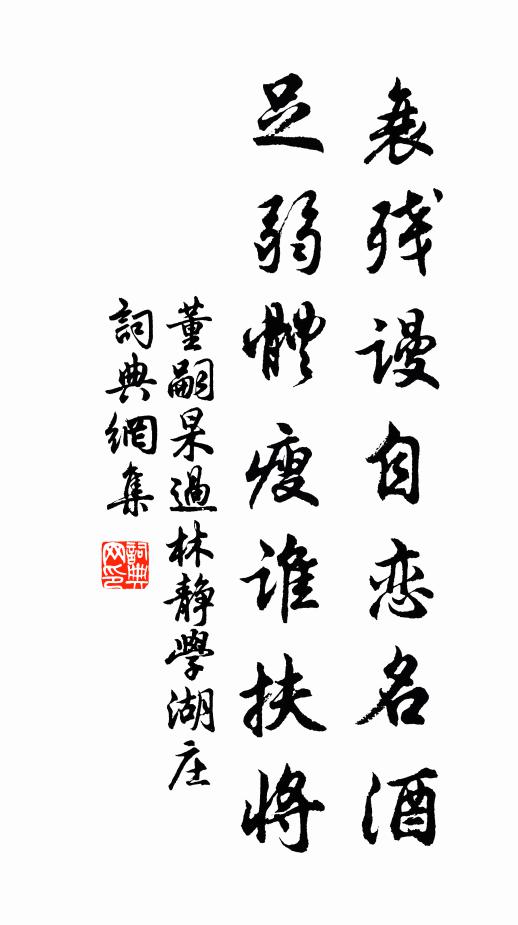 衰残謾自恋名酒
足弱體瘦谁扶將
董嗣杲過林靜學湖庄
詞典網集
詞典網印